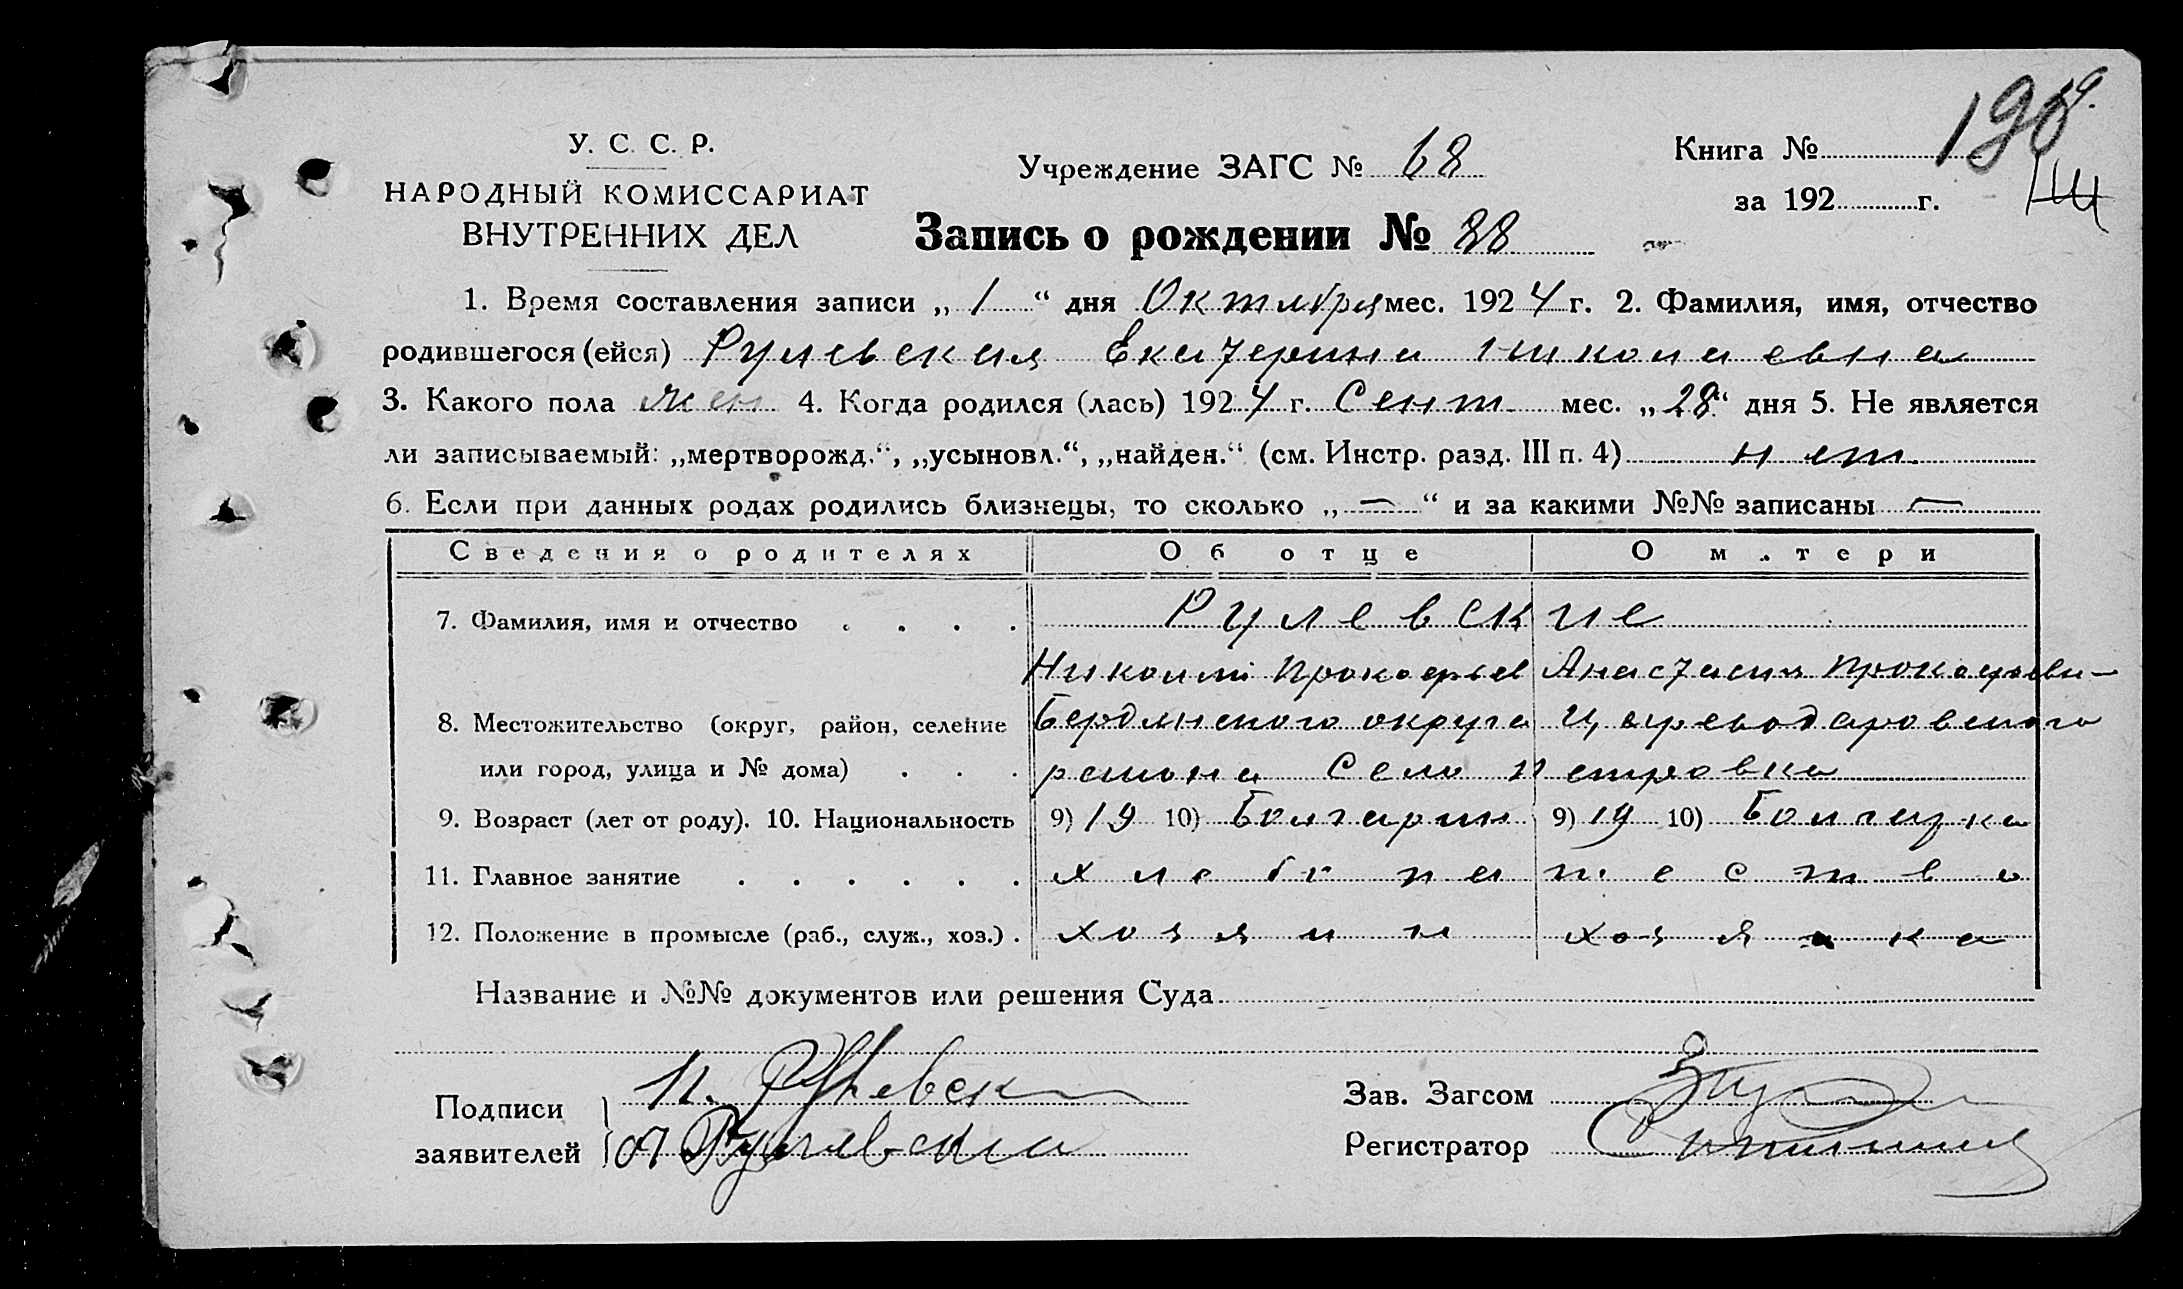 У. С. С. Р.
НАРОДНЫЙ КОМИССАРИАТ
ВНУТРЕННИХ ДЕЛ
Учреждение ЗАГС № 68
Книга №
за 192 г.
Запись о рождении № 88
1. Время составления записи „ 1 “ дня Октября мес. 1924 г. 2. Фамилия, имя, отчество
родившегося (ейся) Рулевская Екатерина Николаевна
3. Какого пола жен 4. Когда родился (лась) 1924 г. Сент мес. „28“ дня 5. Не является
ли записываемый: „мертворожд.“, „усыновл.“, „найден.“ (см. Инстр. разд. III п. 4) нет
6. Если при данных родах родились близнецы, то сколько „ — “ и за какими №№ записаны —
Сведения о родителях Об отце О м.тери
7. Фамилия, имя и отчество . . . . Рулевские
Николай Прокофьев Анастасия Прокофьевн-
8. Местожительство (округ, район, селение Бердянского округа Цареводаровского
или город, улица и № дома) . . . района Село Петровка
9. Возраст (лет от роду). 10. Национальность 9) 19 10) Болгарин 9) 19 10) Болгарка
11. Главное занятие . . . . . . хлебопашество
12. Положение в промысле (раб., служ., хоз.) . хозяин хозяйка
Название и №№ документов или решения Суда
Подписи
заявителей
Н. Рулевск
А Рулевская
Зав. Загсом
Регистратор